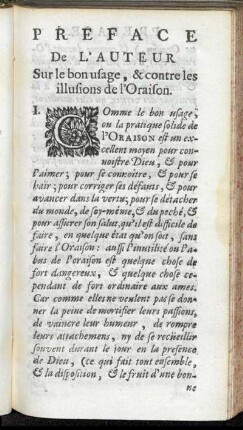 PREFACE
DE L'AUTEUR
Sur le bon usage, & contre les
illusions de l'Oraison.
I. COmme le bon usage,
ou la pratique solide de
l'ORAISON est un ex-
cellent moyen pour con-
noistre Dieu, & pour
l'aimer; pour se connoitre, & pour se
hair; pour corriger ses défauts, & pour
avancer dans la vertu; pour se détacher
du monde, de soy-même, & du peché, &
pour assurer son salut, qu'il est difficile de
faire, en quelque état qu'on soit, sans
faire l'Oraison: aussi l'inutilité ou l'a-
bus de l'oraison est quelque chose de
fort dangereux, & quelque chose ce-
pendant de fort ordinaire aux ames.
Car comme elles ne veulent pas se don-
ner la peine de mortifier leurs passions,
de vaincre leur humeur, de rompre
leurs attachemens, ny de se recueillir
souvent durant le jour en la presence
de Dieu, (ce qui fait tout ensemble,
& la disposition, & le fruit d'une bon-
ne